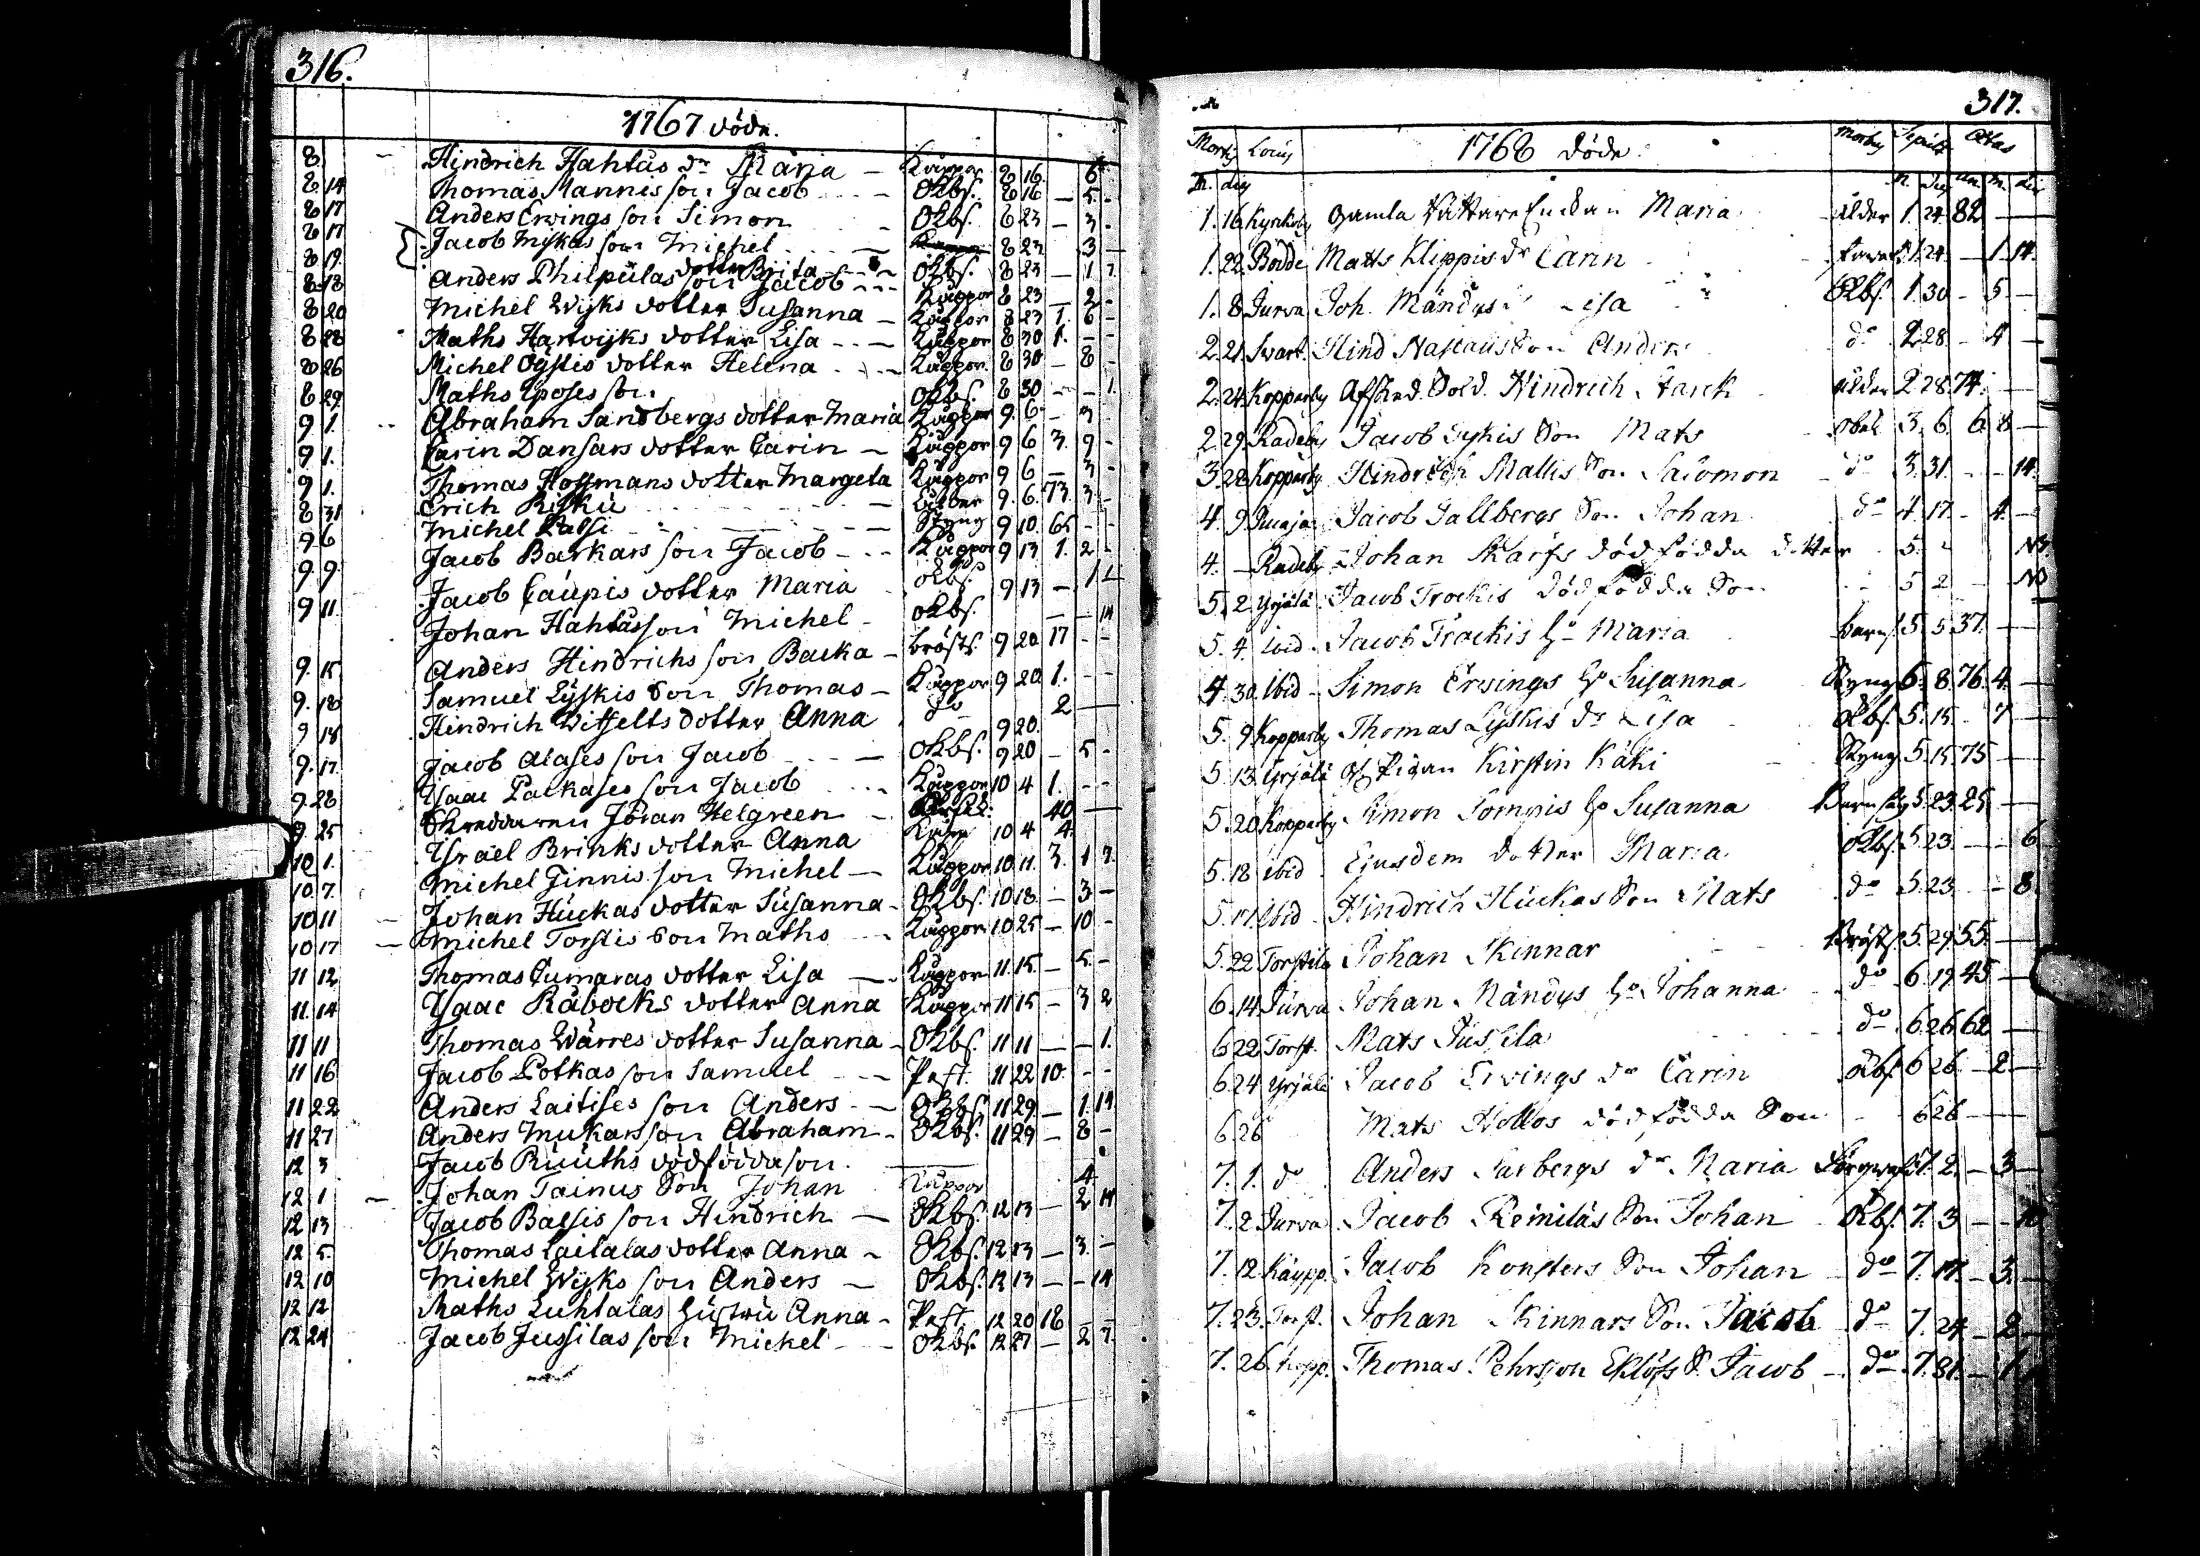 316.
1767 döde.
8 Hindrich Hahtus dr Maria Kåppor 8 16 6
8 14 Thomas Mannis son Jacob Okbs. 8 16 — 5 -
8 17 Anders Ervings son Simon Okbs. 8 23 — 3 -
8 17 Jacob Mykäs son Michel 8 23 3 —
8 19 Anders Philpulas dotter Brita Okbs. 8 23 — 1 7
8 18 son Jacob Kåppor 8 23 — 2 -
8 20 Michel Wijks dotter Susanna Kåppor 8 23 1. 6 -
8 28 Maths Hartvijks dotter Lisa Kåppor 8 30 1. - -
8 26 Michel dotter Helena Kåppor 8 30 — 8 -
8 29 Maths son Okbs. 8 30 - - 1
9 1. Abraham Sandbergs dotter Maria Kåppor 9. 6 — 3
9 1. Carin Dansars dotter Carin Kåppor 9 6 3. 9 -
9 1. Thomas Hoffmans dotter Margeta Kåppor 9 6 — 3 -
8 31 Erich Riskü 9. 6. 73. 3 -
9 6 Michel Styng 9 10. 65 - -
9 9. Jacob Barkars son Jacob Kåppor 9 13 1. 2 -
9 11. Jacob Caupis dotter Maria Okbs. 9 13 — 1
Johan Hahtus son Michel Okbs. — — 14
9. 15. Anders Hindrichs son Backa bröstf. 9 20 17 - -
9. 18 Samuel Lyskis Son Thomas Kåppor 9 20 1. - -
9 18 Hindrich Witzelts dotter Anna do 9 20. 2 —
9. 17. Jacob Alases son Jacob Okbs. 9 20 — 5 -
9. 28 Ysaac Packases son Jacob Kåppor 10 4 1. - -
9. 25 Skreddaren Jöran Helgreen 40 —
10 1. Ysrael Brinks dotter Anna 10 4 4.
10. 7. Michel Jinnis son Michel Kåppor 10 11. 3. 1 7.
10 11 Johan Huckas dotter Susanna Okbs. 10 18. — 3 —
10 17 Michel Torstis Son Maths Kåppor 10 25 — 10 -
11 12 Thomas Cumaras dotter Lisa Kåppor 11 15 — 5 -
11. 14 Ysaac Råbocks dotter Anna Kåppor 11 15 — 3 2
11 11 Thomas Wärres dotter Susanna Okbs. 11 11 — — 1.
11 16 Jacob Potkas son Samuel 11 22 10. - -
11 22 Anders Laitises son Anders Okbs. 11 29 — 1. 14
11 27 Anders Mukars son Abraham Okbs. 11 29 — 8 -
12 3 Jacob Ruuths dödfödda son
12 1 Johan Tainus Son Johan Kåppor 4
12 13 Jacob Bassis son Hindrich Okbs. 12 13 — 2 14
12 5. Thomas Laitalas dotter Anna Okbs. 12 13 — 3. —
12 10 Michel Wijks son Anders Okbs. 12 13 — - 14
12 12 Maths Luhtalas Hustru Anna 12 20 18 - -
12 24 Jacob Jussilas son Mickel Okbs. 12 27 — 2 7.
317.
Morty Locus 1768 döde. Morby Sepult. Ætas
M. die M. die an. M. die
1. 16. Kyrkoby Gamla Enckan Maria ålder 1. 24. 82 —
1. 22. Bodde Matts Klippis dr Carin 1. 24. — 1. 14.
1. 8 Jurva Joh. Mändys Lisa Okbs. 1. 30 - 5. —
2. 21. Svart. Hind Son Anders do 2. 28. - 4 —
2. 24. Kopparby Afsked. Sold. Hindrich Starck ålder 2 28. 74. —
2. 29. Radeby Jacob Lyskis Son Mats obek 3. 6. 6. 8 —
3. 28. Kopparby Hindrich Mallis Son Salomon do 3. 31. - - 14.
4. 9. Jacob Sallbergs Son Johan do 4. 17. - 4 —
4. — Radeby Johan Skarfs dödfödda dotter 5. N3.
5. 2 Yrjälä Jacob Trockis dödfödda Son 5 2 N3
5. 4. ibid Jacob Trockis ho Maria barns. 5. 5 37. —
4. 30. ibid Simon Ervings ho Susanna Styng 6. 8. 76. 4. —
5. 9 Kopparby Thomas Lyskis dr Lisa Okbs. 5. 15. - 7 —
5 13. Yrjälä Pigan Kirstin Käki Styng 5. 15 75 —
5. 20 Kopparby Simon Sompis ho Susanna Barnsäg 5. 23. 25 —
5. 18 ibid Ejusdem dotter Maria Okbs. 5. 23. — - 6
5. 17. ibid Hindrich Huckas Son Mats do 5. 23. - - 8.
5. 22 Torstila Johan Skinnar Bröstf. 5. 29. 55. —
6. 14 Jurva Johan Mändys ho Johanna do 6. 19. 45 —
6 22. Torst. Mats Jussila do 6. 26. 62. —
6. 24 Yrjälä Jacob Ervings dr Carin Okbs. 6 26 - 2 —
6. 26 Mats Hollos dödfödda Son 6 26 —
7. 1. do Anders Sarbergs dr Maria 7. 2. — 3 —
7. 2 Jurva Jacob Remilas Son Johan Okbs. 7. 3 — - 10
7. 12. Kaupp. Jacob Konsters Son Johan do 7. 17. — 3. —
7. 23. Torst. Johan Skinnars Son Jacob do 7. 24 — 2 —
7. 26. Kopp. Thomas Pehrsson Eklöfs S. Jacob do 7. 31. — 1